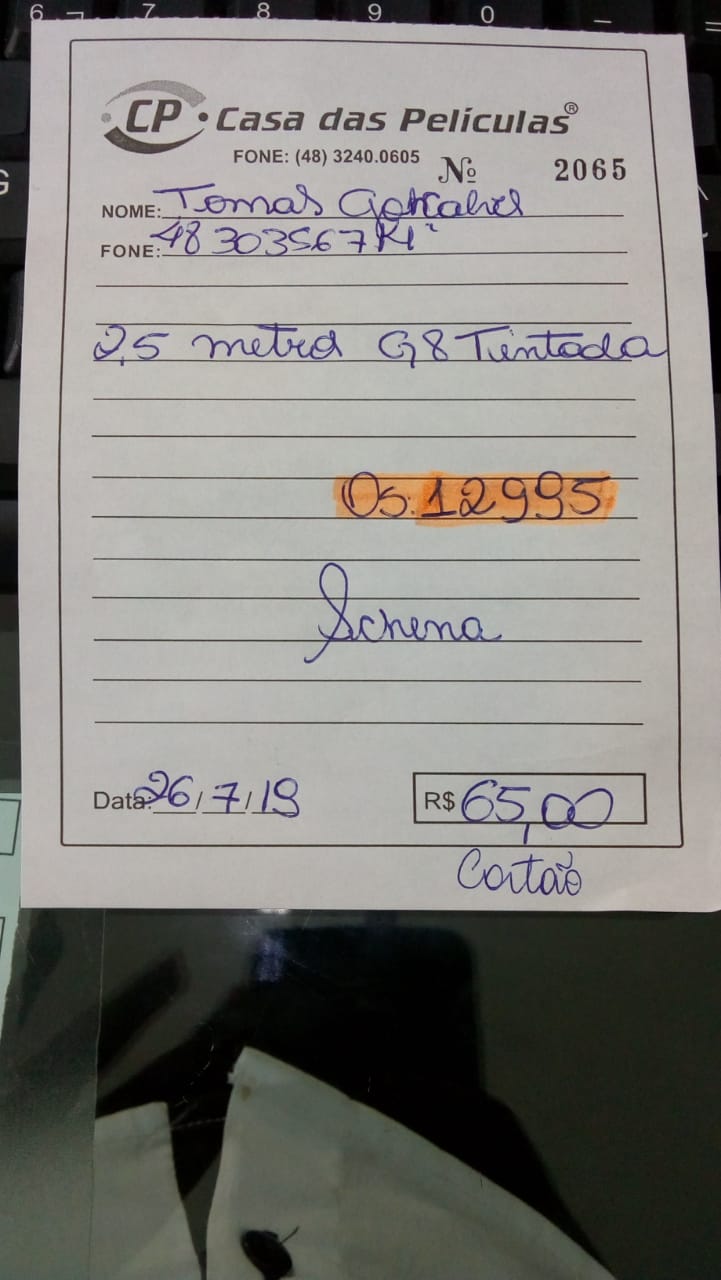 6 7 8 9 0
CP Casa das Películas®
FONE: (48) 3240.0605 Nº 2065
NOME: Tomas
FONE: 48 303567
2,5 metro G8 Tintada
OS: 12995
Schena
Data: 26/7/19 R$ 65,00
Cartão